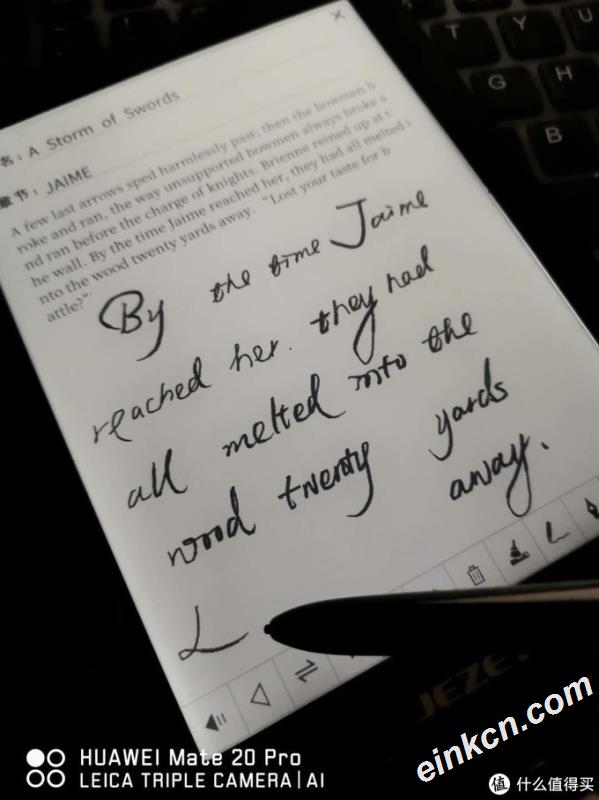 名：A Storm of Swords
章节：JAIME
A few last arrows sped harmlessly past; then the bowmen b
roke and ran, the way unsupported bowmen always broke a
nd ran before the charge of knights. Brienne reined up at t
he wall. By the time Jaime reached her, they had all melted i
nto the wood twenty yards away. "Lost your taste for b
attle?"
By the time Jaime
reached her. they had
all melted into the
wood twenty yards
away.
L
T Y U
G H
B
JEZE
HUAWEI Mate 20 Pro
LEICA TRIPLE CAMERA | AI
einkcn.com
值 什么值得买